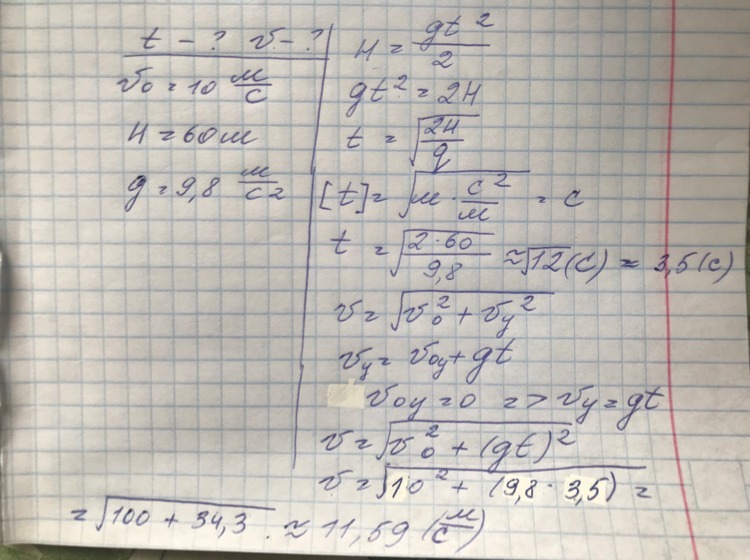 t - ? v - ?
v₀ = 10 м/с
H = 60м
g = 9,8 м/с2
H = gt²/2
gt² = 2H
t = √(2H/g)
[t] = √(м · с²/м) = с
t = √(2·60/9,8) ≈ √12 (с) ≈ 3,5(с)
v = √(v₀² + v_y²)
v_y = v₀y + gt
v₀y = 0 => v_y = gt
v = √(v₀² + (gt)²)
v = √(10² + (9,8 · 3,5) =
= √(100 + 34,3) ≈ 11,59 (м/с)